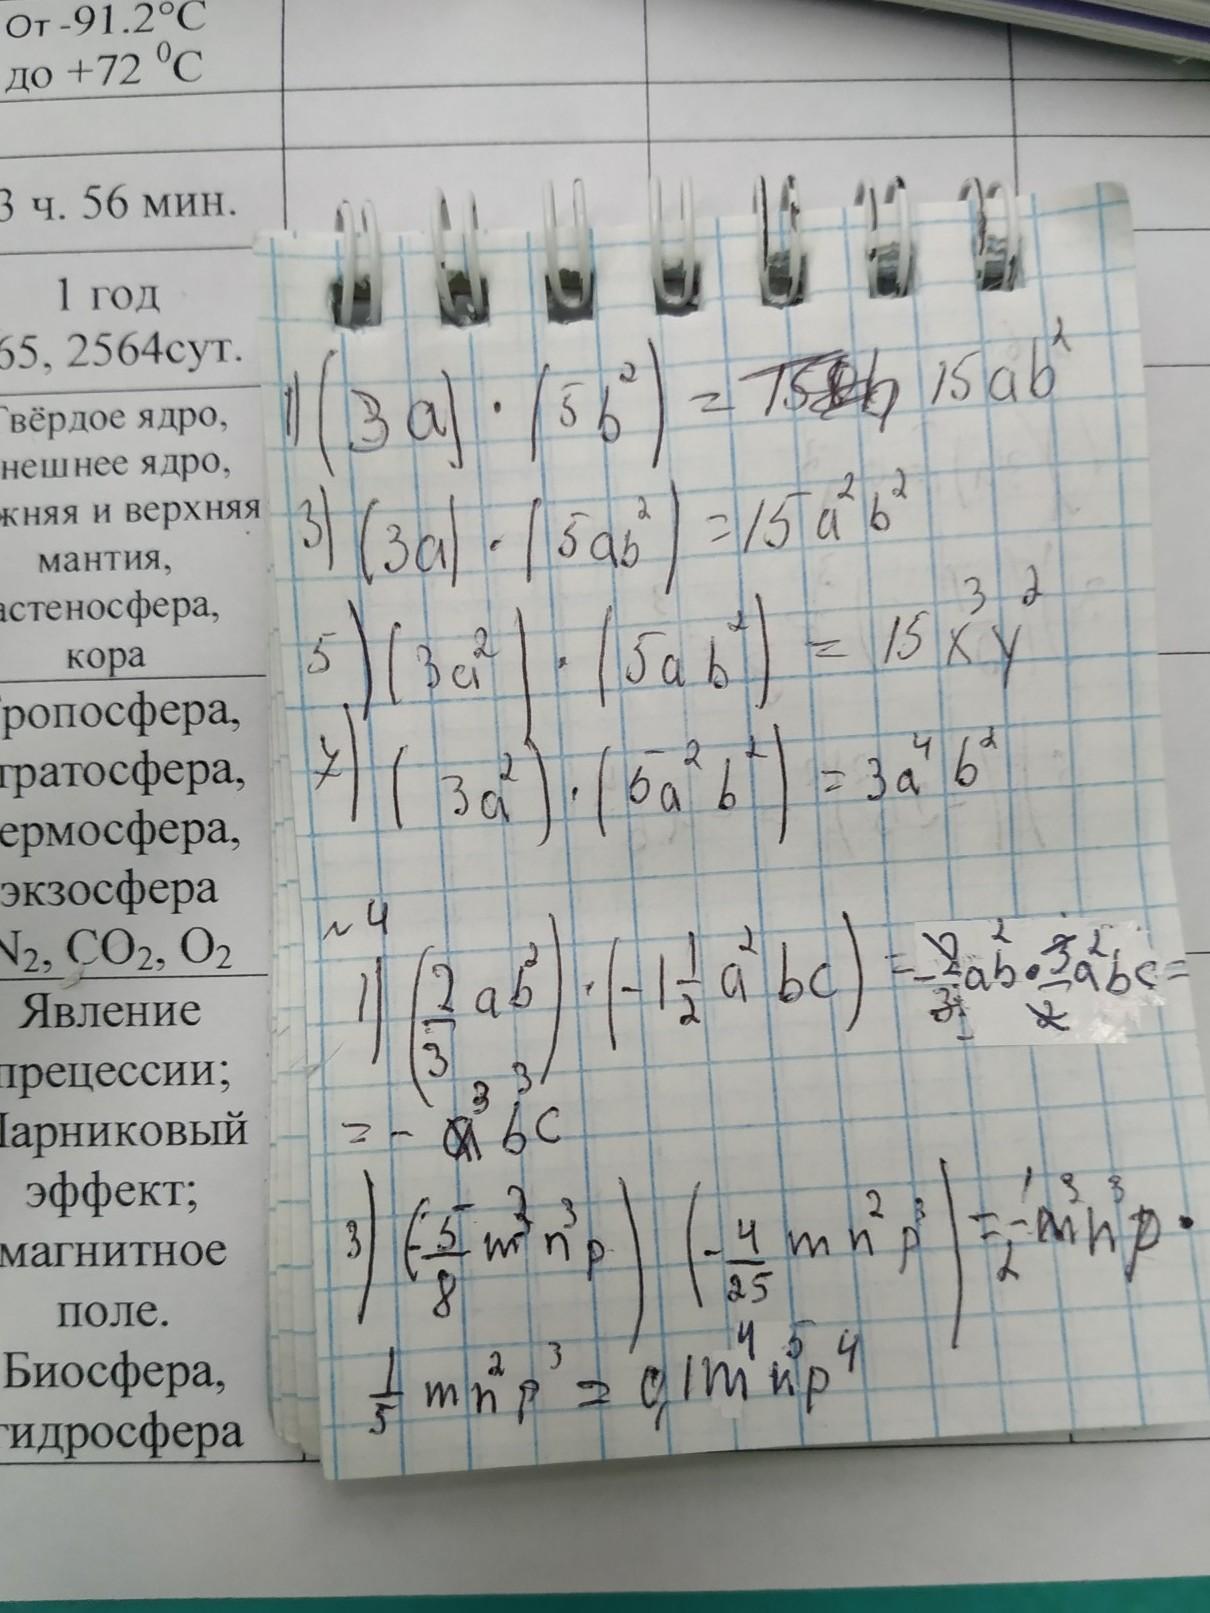 От -91.2°C
до +72 ⁰C
3 ч. 56 мин.
1 год
65, 2564сут.
Твёрдое ядро,
нешнее ядро,
жняя и верхняя
мантия,
астеносфера,
кора
Тропосфера,
тратосфера,
ермосфера,
экзосфера
N₂, CO₂, O₂
Явление
прецессии;
Парниковый
эффект;
магнитное
поле.
Биосфера,
гидросфера
1) (3a) · (5b²) = 15ab²
3) (3a) · (5ab²) = 15a²b²
5) (3a²) · (5ab²) = 15x³y²
7) (3a²) · (5a²b²) = 3a⁴b²
~4
1) (2/3 ab²) · (-1 1/2 a²bc) = -2/3 ab² · 3/2 a²bc =
= - a³b³c
3) (-5/8 m²n³p) (-4/25 mn²p³) = 1/2 m³n³p ·
1/5 mn²p³ = 0,1m⁴n⁵p⁴